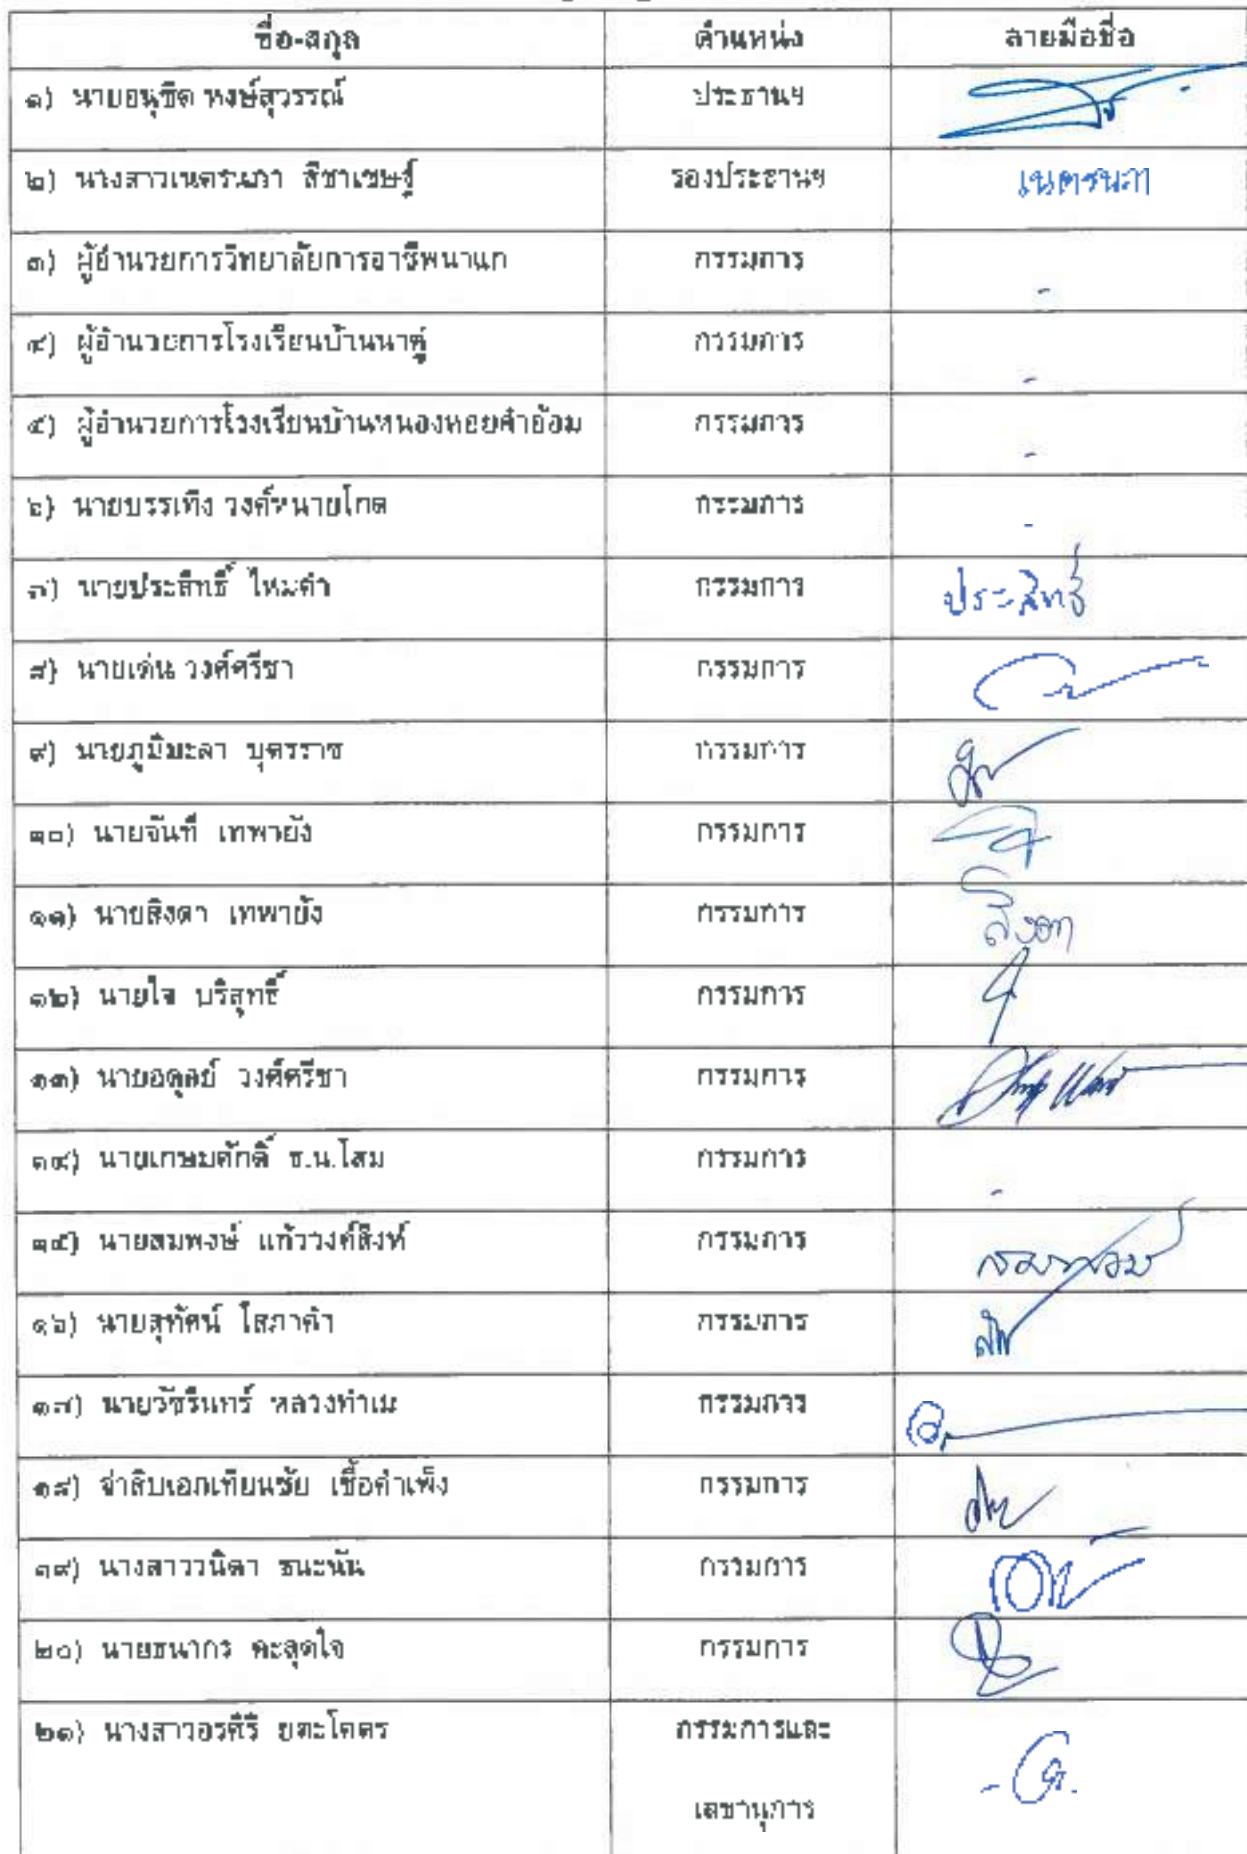 ชื่อ-สกุล ตำแหน่ง ลายมือชื่อ
๑) นายอนุชิด หงษ์สุวรรณ์ ประธานฯ
๒) นางสาวเนตรนภา สีชาเชษฐ์ รองประธานฯ เนตรนภา
๓) ผู้อำนวยการวิทยาลัยการอาชีพนาแก กรรมการ -
๔) ผู้อำนวยการโรงเรียนบ้านนาคู่ กรรมการ -
๕) ผู้อำนวยการโรงเรียนบ้านหนองหอยคำอ้อม กรรมการ -
๖) นายบรรเทิง วงศ์หนายโกด กรรมการ -
๗) นายประสิทธิ์ ไหมคำ กรรมการ ประสิทธิ์
๘) นายเด่น วงค์ศรีชา กรรมการ
๙) นายภูมีมะลา บุตรราช กรรมการ
๑๐) นายจันที เทพายัง กรรมการ
๑๑) นายสิงดา เทพายัง กรรมการ
๑๒) นายใจ บริสุทธิ์ กรรมการ
๑๓) นายอดุลย์ วงศ์ศรีชา กรรมการ
๑๔) นายเกษมศักดิ์ ธ.น.โสม กรรมการ -
๑๕) นายสมพงษ์ แก้ววงศ์สิงห์ กรรมการ
๑๖) นายสุทัศน์ โสภาคำ กรรมการ
๑๗) นายวัชรินทร์ หลวงทำเม กรรมการ
๑๘) จ่าสิบเอกเทียนชัย เชื้อคำเพ็ง กรรมการ
๑๙) นางสาววนิดา ชนะนัน กรรมการ
๒๐) นายธนากร คะสุดใจ กรรมการ
๒๑) นางสาวอรศิริ ยตะโคตร กรรมการและ
เลขานุการ